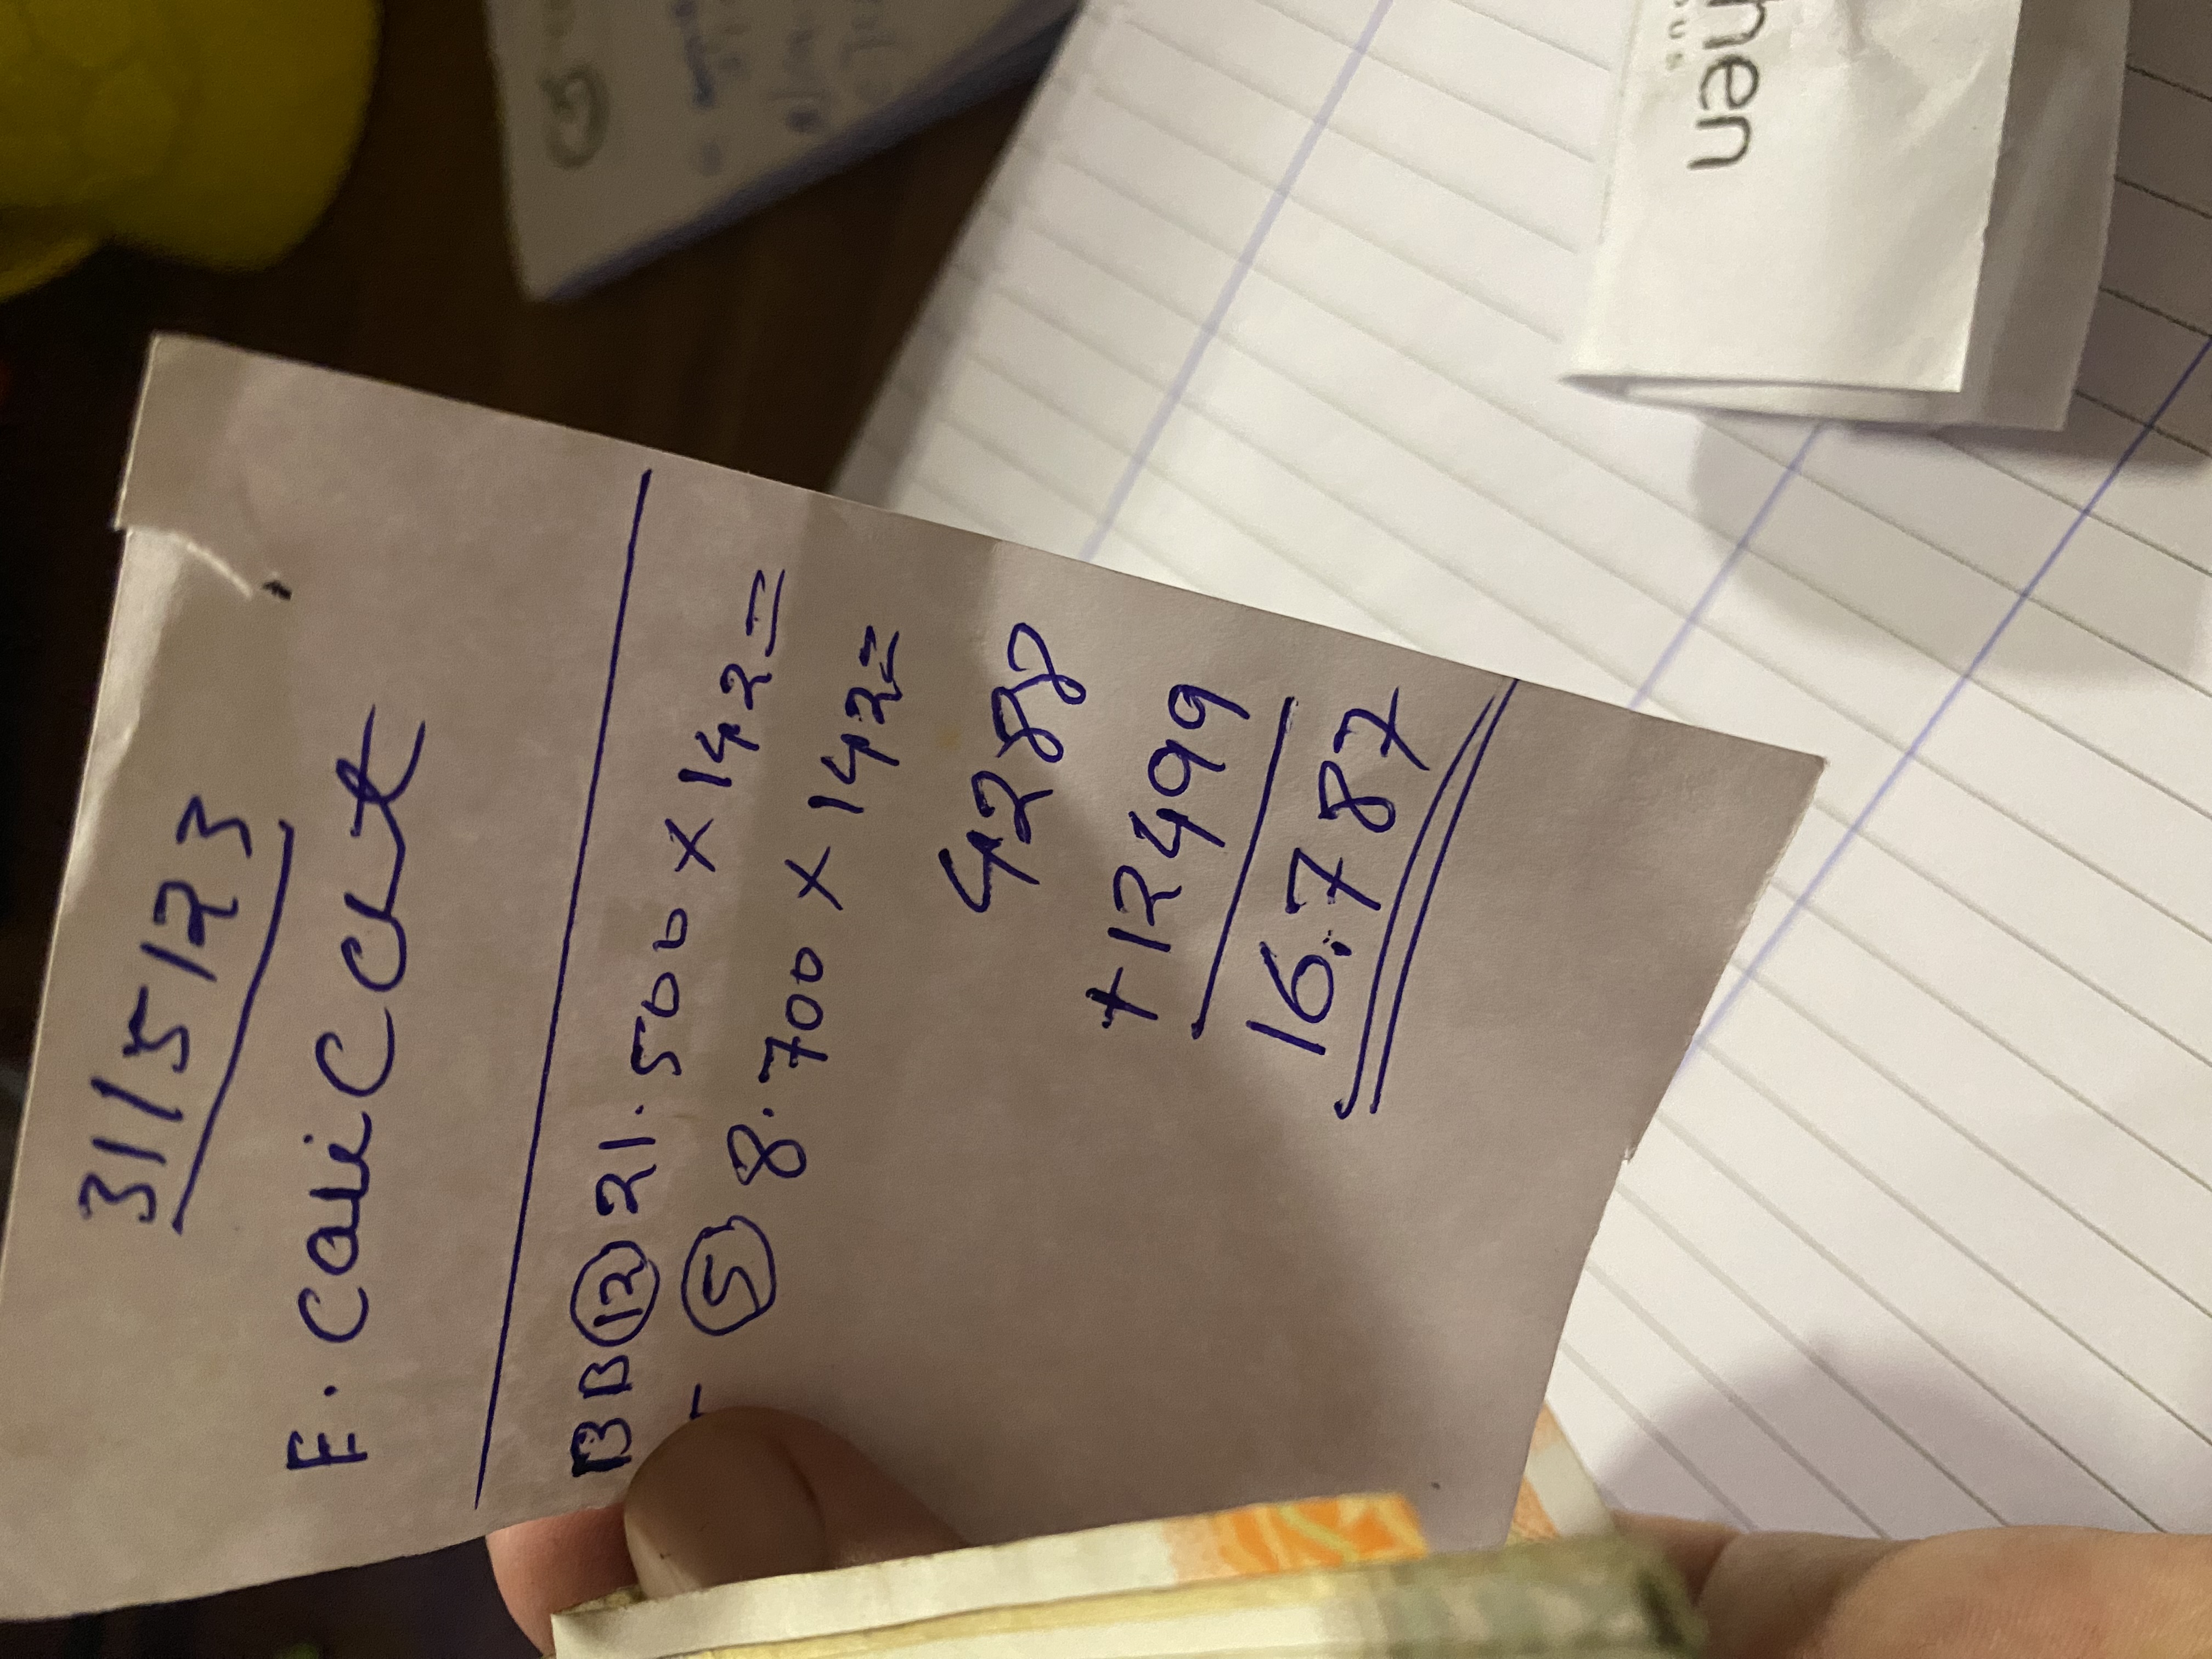 31/5/23
E. Calicut
BB (12) 21.500 x 142 =
- (5) 8.700 x 142 =
4288
+ 12499
16.787